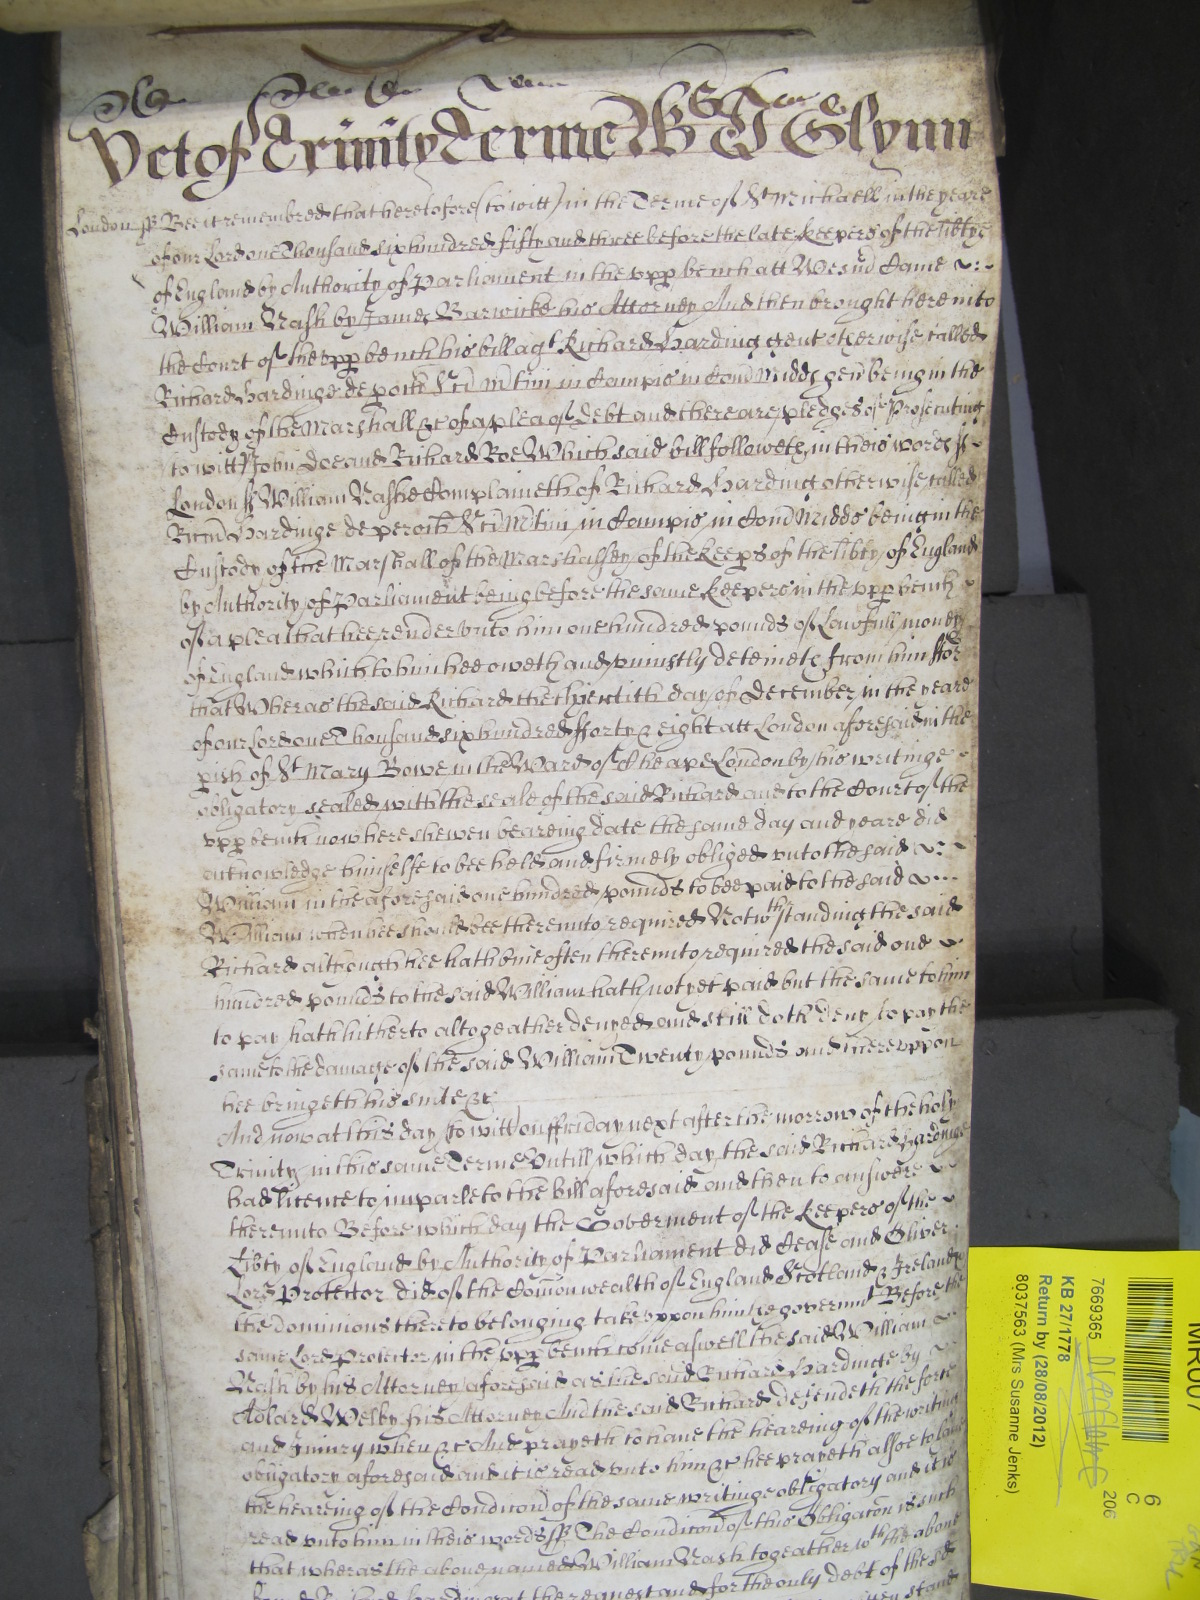 Yet of Trinity Terme Glynn
London ss Bee it remembred that heretofore (to witt) in the Terme of St Michaell in the yeare
of our Lord one Thousand six hundred fifty and three before the late Keepers of the libtye
of England by Authority of Parliament in the upp bench att Westm Came
William Nash by James Barwicke his Attorney And then brought here into
the Court of the upp bench his bill agt Richard Harding gent otherwise called
Richard Hardinge de poch Scti Mtini in Campis in Com Midds gen being in the
Custody of the Marshall &c of a plea of Debt and there are pledges of Prosecuting
to witt John Doe and Richard Roe Which said bill followeth in theis words ss
London ss William Nashe Complaineth of Richard Harding otherwise called
Ricum Hardinge de peroch Scti Mtini in Campis in Com Midds being in the
Custody of the Marshall of the Marshalsey of the Keeps of the libty of England
by Authority of Parliament being before the same Keepers in the upp bench
of a plea that hee render unto him one hundred pounds of Lawfull money
of England which to him hee oweth and uniustly deteineth from him ffor
that Wheras the said Richard the day of December in the yeare
of our Lord one Thousand six hundred fforty & eight att London aforesaid in the
pish of St Mary Bowe in the Ward of Cheape London by his writinge
obligatory sealed with the seale of the said Richard and to the Court of the
upp bench now here shewen beareing date the same day and yeare did
acknowledge himselfe to bee held and firmely obliged unto the said
William in the aforesaid one hundred pounds to bee paid to the said
William when hee should bee thereunto required Notwthstanding the said
Richard although hee hath bine often thereunto required the said one
hundred pounds to the said William hath not yet paid but the same to him
to pay hath hitherto altogeather denyed and still doth deny to pay the
same to the damage of the said William Twenty pounds and thereuppon
hee bringeth his suite &c
And now at this day (to witt) on ffriday next after the morrow of the holy
Trinity in this same Terme Untill which day the said Richard Hardinge
had licence to imparle to the bill aforesaid and then to answere
thereunto Before which day the Goverment of the Keepers of the
Libty of England by Authority of Parliament did Cease and Oliver
Lord Protector did of the Comonwealth of England Scotland & Ireland &
the dominions thereto belonging take uppon him the governmt Before the
same Lord Protector in the upp bench come aswell the said William
Nash by his Attorney aforesaid as the said Richard Hardinge by
Welby his Attorney And the said Richard defendeth the force
and Iniury when &c And prayeth to have the heareing of the writing
obligatory aforesaid and it is read unto him &c hee prayeth alsoe to
the heareing of the Condicon of the same writinge obligatory and it is
read unto him in theis words ss The Condicon of this Obligacon is such
that wheras the above named William Nash togeather wth the above
Richard Harding at the request and for the only debt of the sd
MR007
6
C
7669365
206
KB 27/1778
Return by (28/08/2012)
8037563 (Mrs Susanne Jenks)